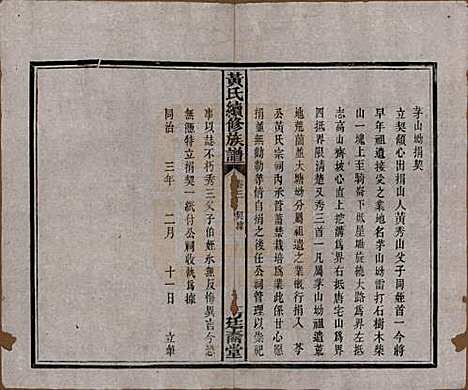 茅山坳捐契
立契願心出捐山人黃秀山父子同姪首一今將
早年祖遺接受之業地名茅山坳雷打石樹木柴
山一塊上至騎崙下低屋場旋繞大路爲界左並
志高山齊坡心直上挖溝爲界右抵唐宅山爲界
四抵界限清楚又秀三首一凡屬茅山坳祖遺荒
地荒薗並大塘坳分屬祖遺之業概行捐入 芩
公黃氏宗祠丙承管蓄禁栽培爲業此係甘心愿
捐並無勸勒等情自捐之後任公祠管理以崇祀
事以誌不朽秀三父子伯姪永無反悔異言今恐
無憑特立捐契一紙付公祠收執爲據
同治 三年 二月 十一日 立筆
黃氏續修族譜
卷三 契據
廷斋堂